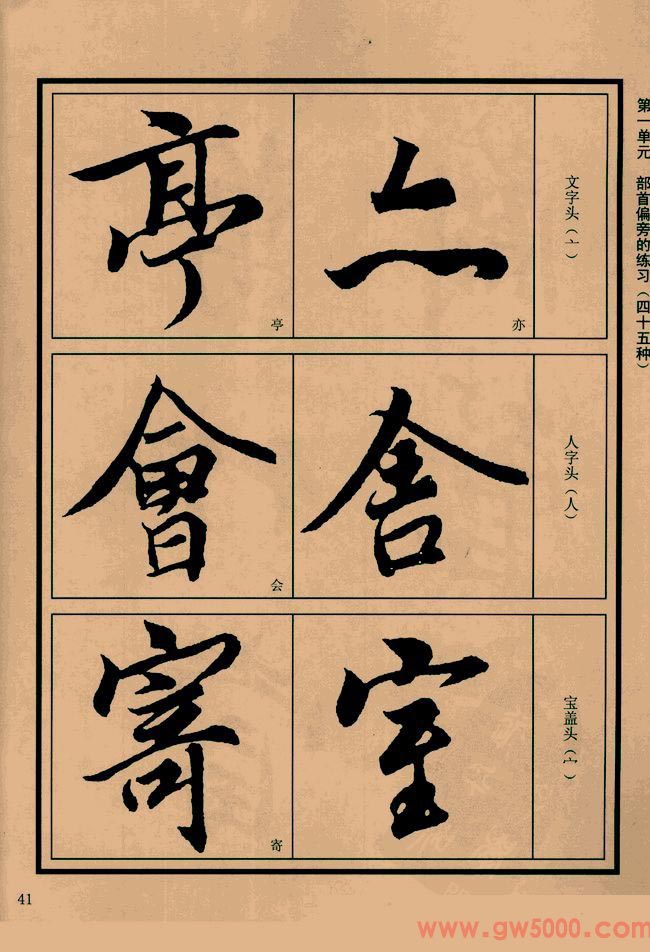 第一单元 部首偏旁的练习（四十五种）
文字头（亠）
亦
亭
亭
人字头（人）
舍
會
会
宝盖头（宀）
室
寄
寄
41
www.gw5000.com